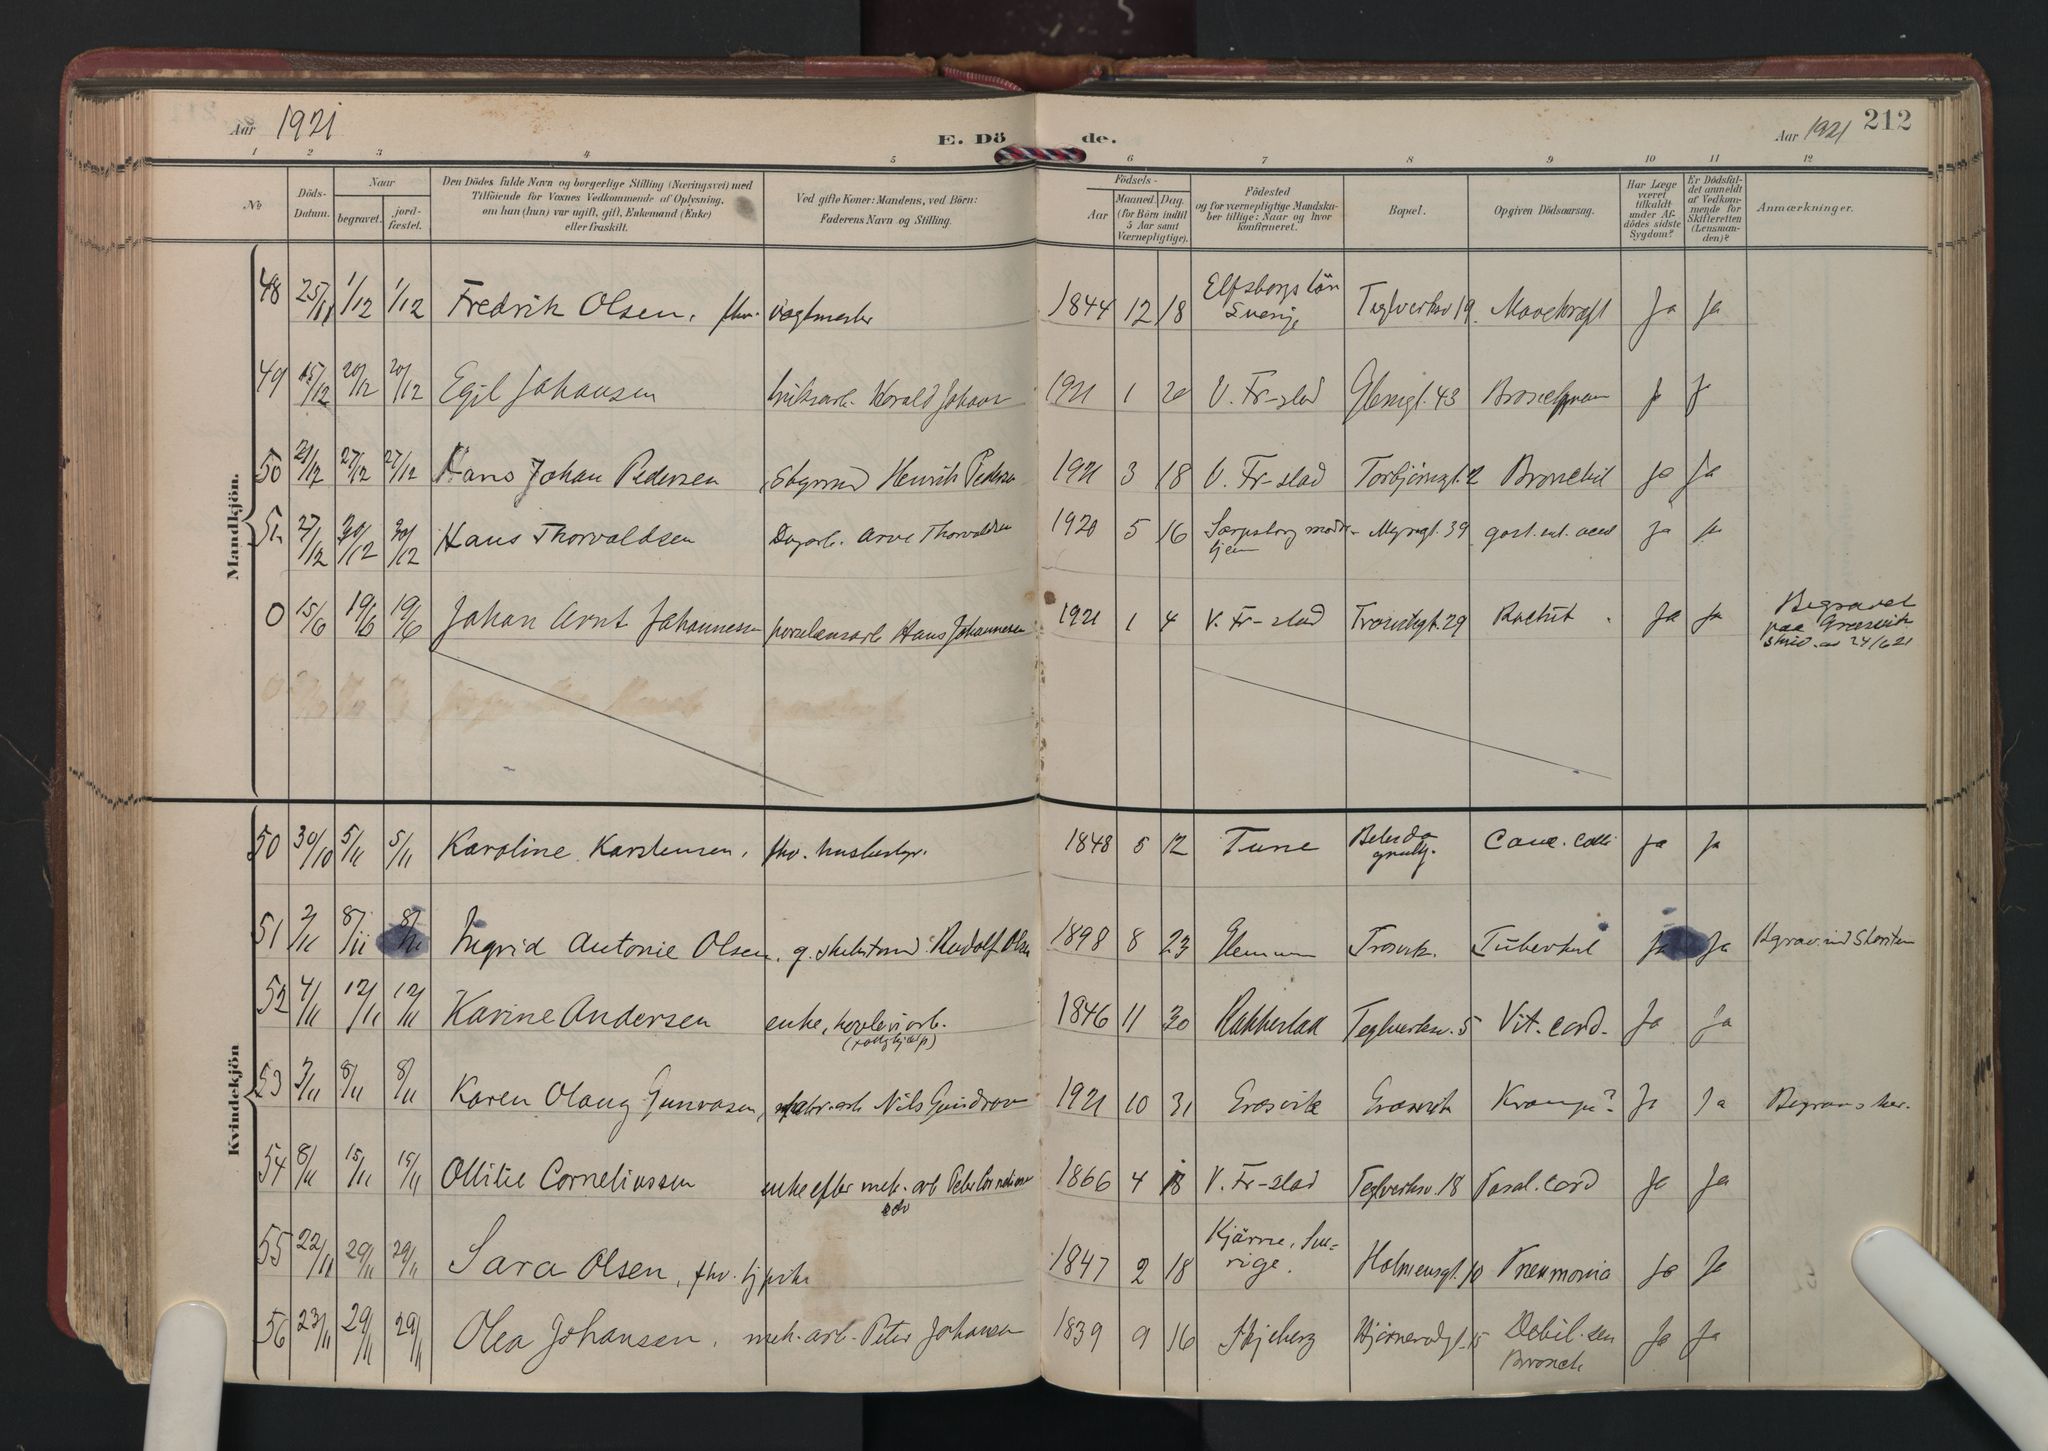 Aar 1921
E. Döde.
Aar 1921 212
1 2 3 4 5 6 7 8 9 10 11 12
No
Döds-Datum.
Naar
begravet.
jord-fæstet.
Den Dödes fulde Navn og borgerlige Stilling (Næringsvei) med
Tilföiende for Voxnes Vedkommende af Oplysning,
om han (hun) var ugift, gift, Enkemand (Enke)
eller fraskilt.
Ved gifte Koner: Mandens, ved Börn:
Faderens Navn og Stilling.
Födsels-
Aar
Maaned.
Dag.
(for Börn indtil
5 Aar samt
Værnepligtige).
Födested
og for værnepligtige Mandska-
ber tillige: Naar og hvor
konfirmeret.
Bopæl.
Opgiven Dödsaarsag.
Har Læge
været
tilkaldt
under Af-
dödes sidste
Sygdom?
Er Dödsfal-
det anmeldt
af Vedkom-
mende for
Skifteretten
(Lensman-
den)?
Anmærkninger.
Mandkjön.
48 25/11 1/12 1/12 Fredrik Olsen, fhv. vagtmester 1844 12 18 Elfsborgs län Sverige Teglverksv 19. Ja Ja
49 15/12 20/12 20/12 Egil Johansen Harald Johans 1921 1 20 V. Fr-stad Glemgt. 43 Ja Ja
50 21/12 27/12 27/12 Hans Johan Pedersen Henrik Pedersen 1921 3 18 V. Fr-stad Torbjörnsgt. 2 Ja Ja
51 27/12 30/12 30/12 Hans Thorvaldsen Dagarb. Arve Thorvaldsen 1920 5 16 Sarpsborg mødrehjem Myragt. 39 Ja Ja
0 15/6 19/6 19/6 Johan Arnt Johannessen porselensarb Hans Johannesen 1921 1 4 V. Fr-stad Trosvikgt. 29 Rachit Ja Ja Begravet paa Gressvik 24/6 21
Kvindekjön
50 30/10 5/11 5/11 Karoline Karstensen, fhv. husbestyr. 1848 5 12 Tune Canc. Ja Ja
51 2/11 8/11 8/11 Ingrid Antonie Olsen, g. Rudolf Olsen 1898 8 23 Glemmen Trosvik. Tuberkul Ja Ja
52 4/11 12/11 12/11 Karine Andersen enke, 1846 11 30 Rakkestad Teglverksv. 5 Vit. cord. Ja Ja
53 3/11 8/11 8/11 Karen Olaug fabr.arb Nils 1921 10 31 Gressvik Gressvik Krampe? Ja Ja
54 8/11 15/11 15/11 Ottilie Corneliussen enke efter mek. arb Peter Corneliussen 1866 4 18 V. Fr-stad Teglverksv. 18 cord Ja Ja
55 22/11 29/11 29/11 Sara Olsen, fhv. 1847 2 18 Kjärne, Sverige. Holmensgt. 10 Pneumonia Ja Ja
56 23/11 29/11 29/11 Olea Johansen, mek. arb. Peter Johansen 1839 9 16 Skjeberg 15 Debil. sen Bronch Ja Ja